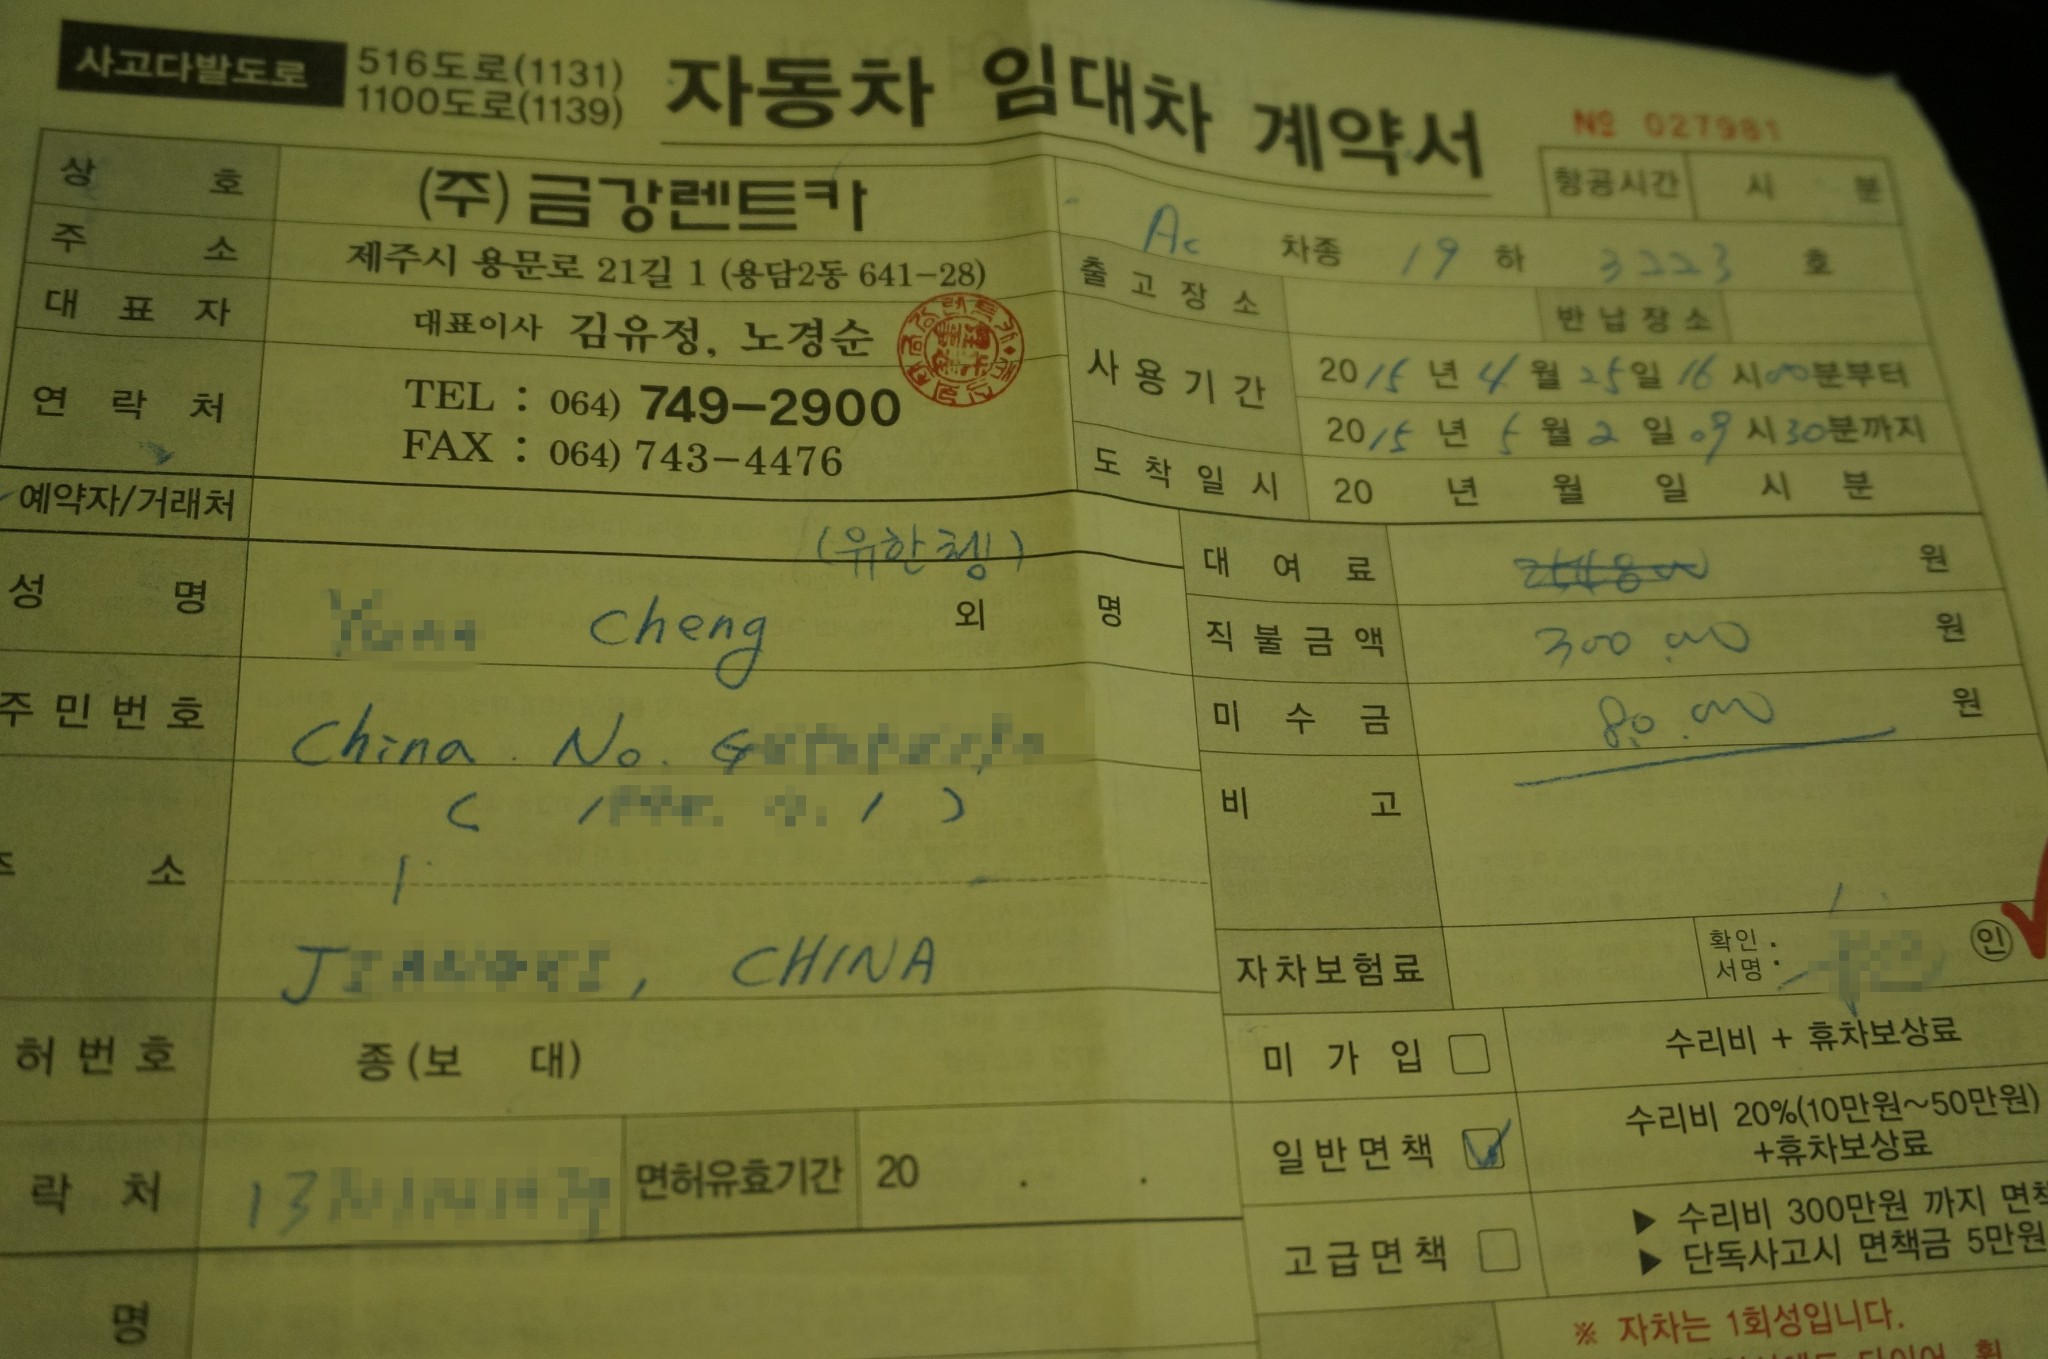 사고다발도로 516도로(1131)
1100도로(1139)
자동차 임대차 계약서
№ 027981
항공시간 시 분
상 호 (주) 금강렌트카
주 소 제주시 용문로 21길 1 (용담2동 641-28)
대 표 자 대표이사 김유정, 노경순
연 락 처 TEL : 064) 749-2900
FAX : 064) 743-4476
Ac 차종 19 하 3223 호
출 고 장 소 반 납 장 소
사 용 기 간 2015 년 4 월 25 일 16 시 00 분부터
2015 년 5 월 2 일 09 시 30 분까지
도 착 일 시 20 년 월 일 시 분
예약자/거래처
(유한쳉)
성 명 Cheng 외 명
주 민 번 호 China No.
주 소
, CHINA
허 번 호 종 (보 대)
락 처 13 면허유효기간 20 . .
명
대 여 료 원
직 불 금 액 300.000 원
미 수 금 80.000 원
비 고
자차보험료 확인 :
서명 : 인
미 가 입 수리비 + 휴차보상료
일 반 면 책 수리비 20%(10만원~50만원)
+휴차보상료
고 급 면 책 ▶ 수리비 300만원 까지 면책
▶ 단독사고시 면책금 5만원
※ 자차는 1회성입니다.